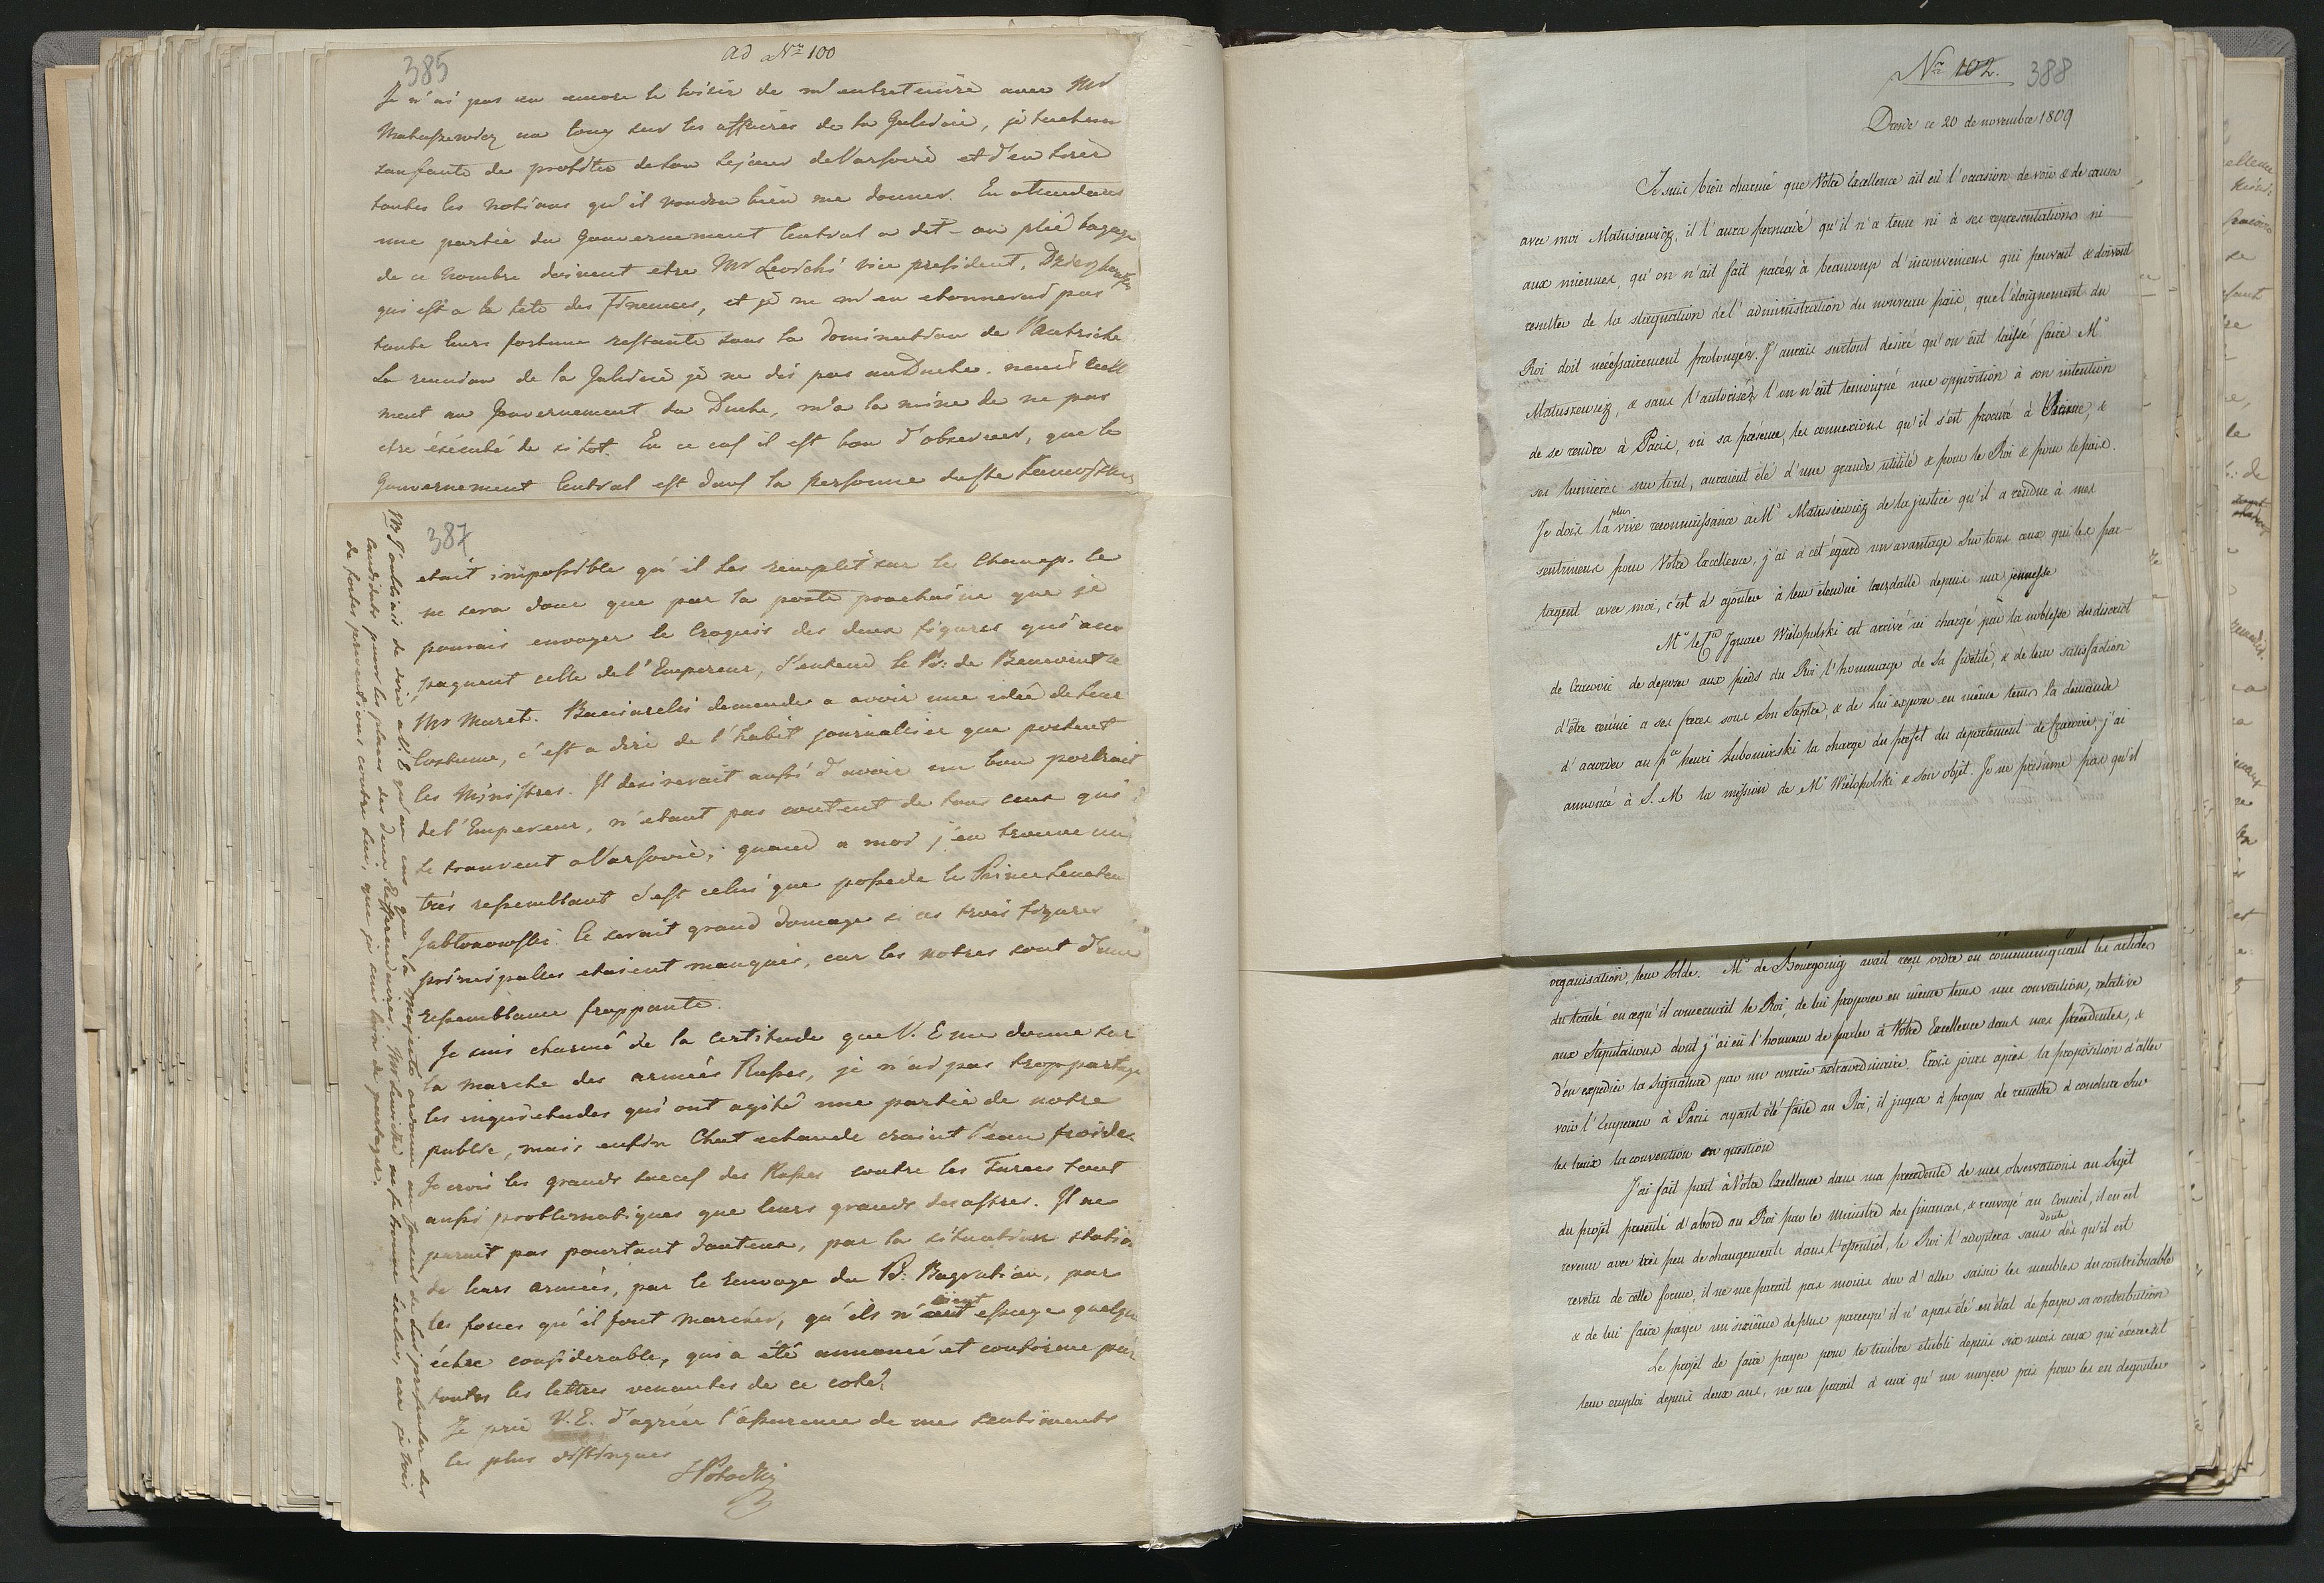 385
ad Nro 100
Je n'ai pas eu encore le loisir de m'entretenir avec Mr
Matuszewicz au long sur les affaires de la Galicie, je tacherai
de profiter de son sejour de Varsovie et d'en tirer
toutes les notions qu'il voudra bien me donner. En attendant
une partie du Gouvernement Central a dit-on plié bagage
de ce nombre doivent etre Mr vice president,
qui est a la tete des Finances, et je ne m'en etonnerai pas
toute leurs fortune restante sous la domination de l'Autriche
La reunion de la Galicie je ne dis pas au Duché. mais
ment au Gouvernement du Duché, m'a la mine de ne pas
etre éxécuté de sitot. En ce cas il est bon d'observer, que le
Gouvernement Central est dans la personne du Cte Zamoyski
387
etait impossible qu'il les remplit sur le champ. Ce
ne sera donc que par la poste prochaine que je
pourais envoyer le Croquis des deux figures qui accom
pagnent celle de l'Empereur, s'entend le Pr: de Benevent &
Mr Maret. Bacciarelli demande a avoir une idée de leur
Costume, c'est a dire de l'habit journalier que portent
les Ministres. Il desirerait aussi d'avoir un bon portrait
de l'Empereur, n'etant pas content de tous ceux qui
se trouvent a Varsovie, quand a moi j'en trouve un
très ressemblant c'est celui que possede le Prince
Jabłonowski. Ce serait grand domage si ces trois figures
principalles etaient manquès, car les notres sont d'une
ressemblance frappante.
Je suis charmé de la certitude que V. E me donne sur
la marche des armées Russes, je n'ai pas trop partagé
les inquietudes qui ont agité une partie de notre
public, mais enfin Chat echaudé craint l'eau froide.
Je crois les grands succes des Russes contre les Turcs tout
aussi problematiques que leurs grands desastres. Il ne
parait pas pourtant douteux, par la situation
de leurs armées, par le du Pr: Bagration, par
les forces qu'il font marcher, qu'ils n'aient essuye quelque
échec considerable, qui a été annoncé et confirmé par
toutes les lettres venantes de ce coté,
Je prie V. E. d'agréer l'assurence de mes sentiments
les plus distingues
SPotocki
J'oubliais de dire a V. E qu'en cas que Sa Majesté ordonne au Conseil de Lui presenter des
Candidats pour les places des deux Refferendaires, Mr se trouve exclus, car je vois
de fortes preventions contre lui, que je suis loin de partager.
Nro 102. 388
Dresde ce 20 de novembre 1809
Je suis bien charmé que Votre Excellence ait eû l'occasion de voir & de causer
avec moi Matusiewicz, il l'aura persuadé qu'il n'a tenu ni à ses representations ni
aux miennes, qu'on n'ait fait parér à beaucoup d'inconveniens qui peuvent & doivent
resulter de la stagnation de l'administration du nouveau païs, que l'éloignement du
Roi doit necessairement prolonger. J'aurais surtout desiré qu'on eut laissé faire Mr
Matuszewicz, & sans l'autoriser l'on n'eût temoigné une opposition à son intention
de se rendre à Paris, où sa présence, les connexions qu'il s'est procuré à Vienne, &
ses lumieres sur tout, auraient été d'une grande utilité & pour le Roi & pour le païs.
Je dois la plus vive reconnaissance à Mr Matusiewicz de la justice qu'il a rendue à mes
sentimens pour Votre Excellence, j'ai à cet égard un avantage sur tous ceux qui les par-
tagent avec moi, c'est d'ajouter à leur étendue leur datte depuis ma jeunesse
Mr le Cte Ignace Wielopolski est arrivé ici chargé par la noblesse du district
de Cracovie de deposer aux pieds du Roi l'hommage de sa fidélité, & de leur satisfaction
d'être reünie a ses freres sous Son Sceptre, & de Lui exposer en même tems la demande
d'accorder au Pce Henri Lubomirski la charge du prefet du departement de Cracovie, j'ai
annoncé à S. M la mission de Mr Wielopolski & son objet. Je ne présume pas qu'il
organisation, leur solde. Mr de Bourgoing avait reçu ordre en communiquant les articles
du traité en ce qu'il concernait le Roi, de lui proposer en même tems une convention, relative
aux Stipulations dont j'ai eû l'honneur de parler à Votre Excellence dans mes précedentes, &
d'en expedier la Signature par un courier extraordinaire. Trois jours après la proposition d'aller
voir l'Empereur à Paris ayant été faite au Roi, il jugea à propos de remettre à conclure sur
les lieux la convention en question
J'ai fait part à Votre Excellence dans ma precedente de mes observations au Sujet
du projet presenté d'abord au Roi par le Ministre des finances, & renvoyé au Conseil, il en est
revenu avec très peu de changements dans l'essentiel, le Roi l'adoptera sans doute dès qu'il est
revetu de cette forme, il ne me parait pas moins dur d'aller saisir les meubles du contribuable
& de lui faire payer un sixième de plus parcequ'il n'a pas été en état de payer sa contribution
Le projet de faire payer pour le timbre etabli depuis six mois ceux qui éxercent
leur emploi depuis deux ans, ne me parait à moi qu'un moyen pris pour les en degouter